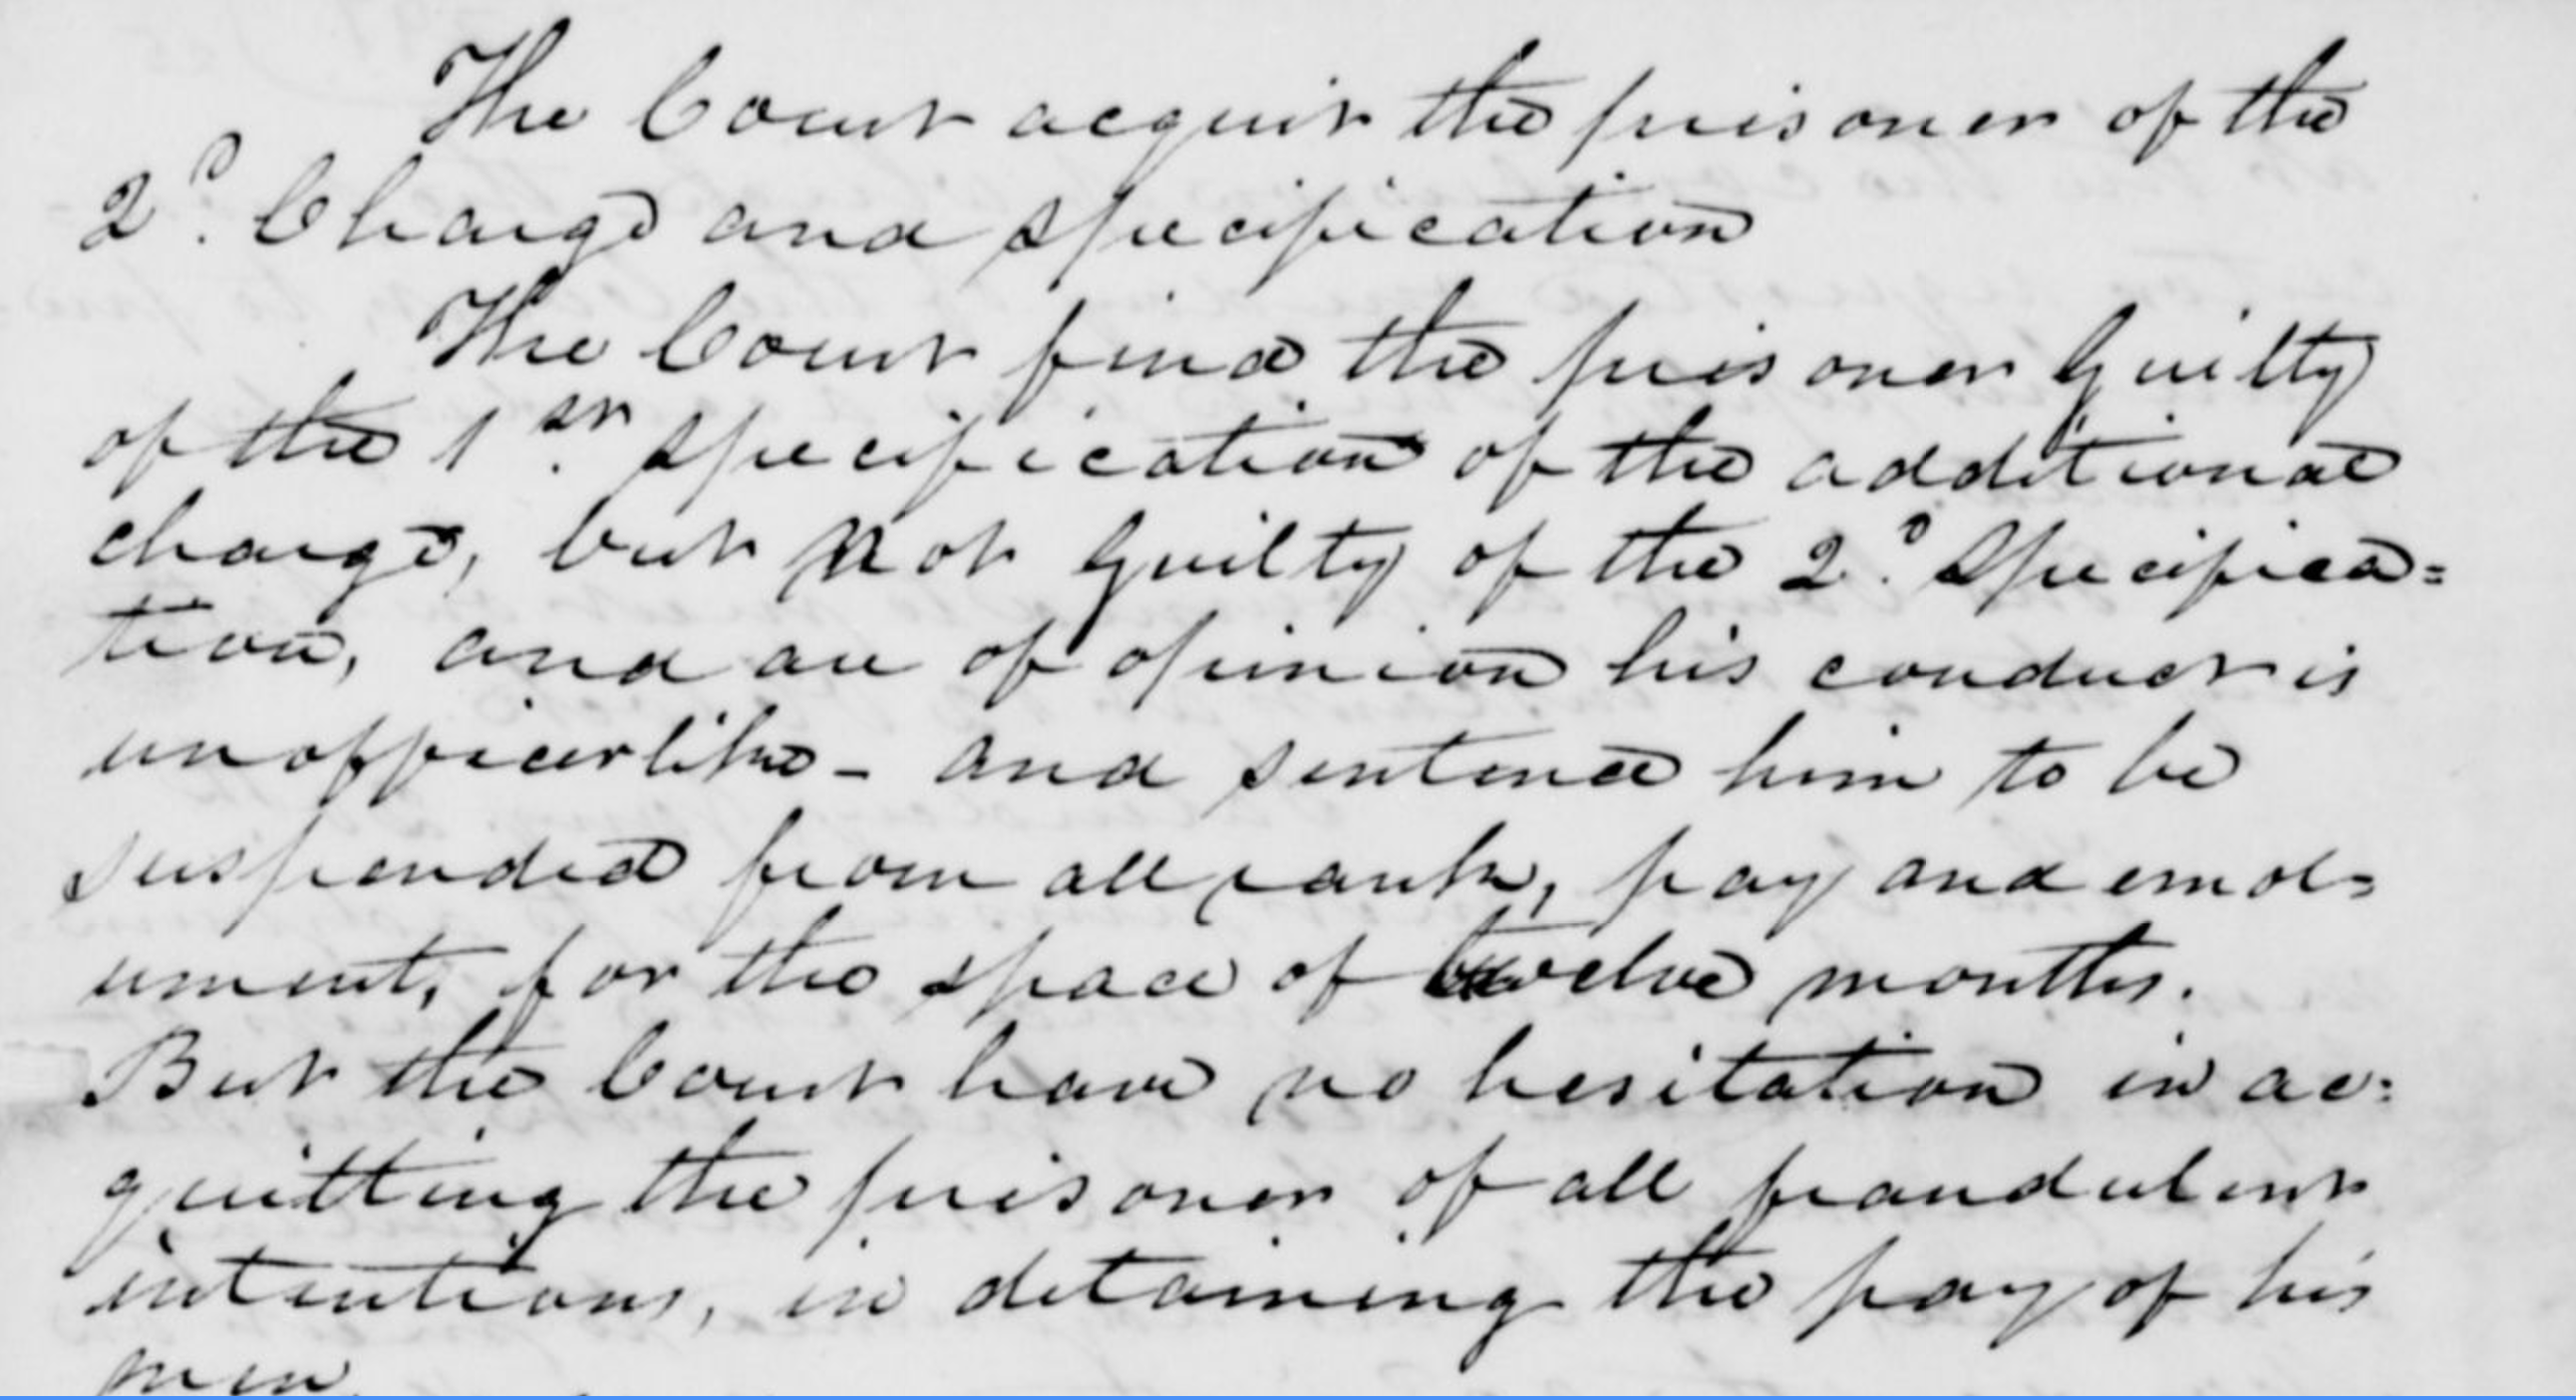 The Court acquit the prisoner of the
2d. Charge and specification
The Court find the prisoner Guilty
of the 1st. specification of the additional
charge, but not Guilty of the 2d. Specifica=
tion, and are of opinion his conduct is
unofficerlike - and sentence him to be
suspended from all rank, pay and emol=
ument, for the space of twelve months.
But the Court have no hesitation in ac=
quitting the prisoner of all fraudulent
intentions, in detaining the pay of his
men